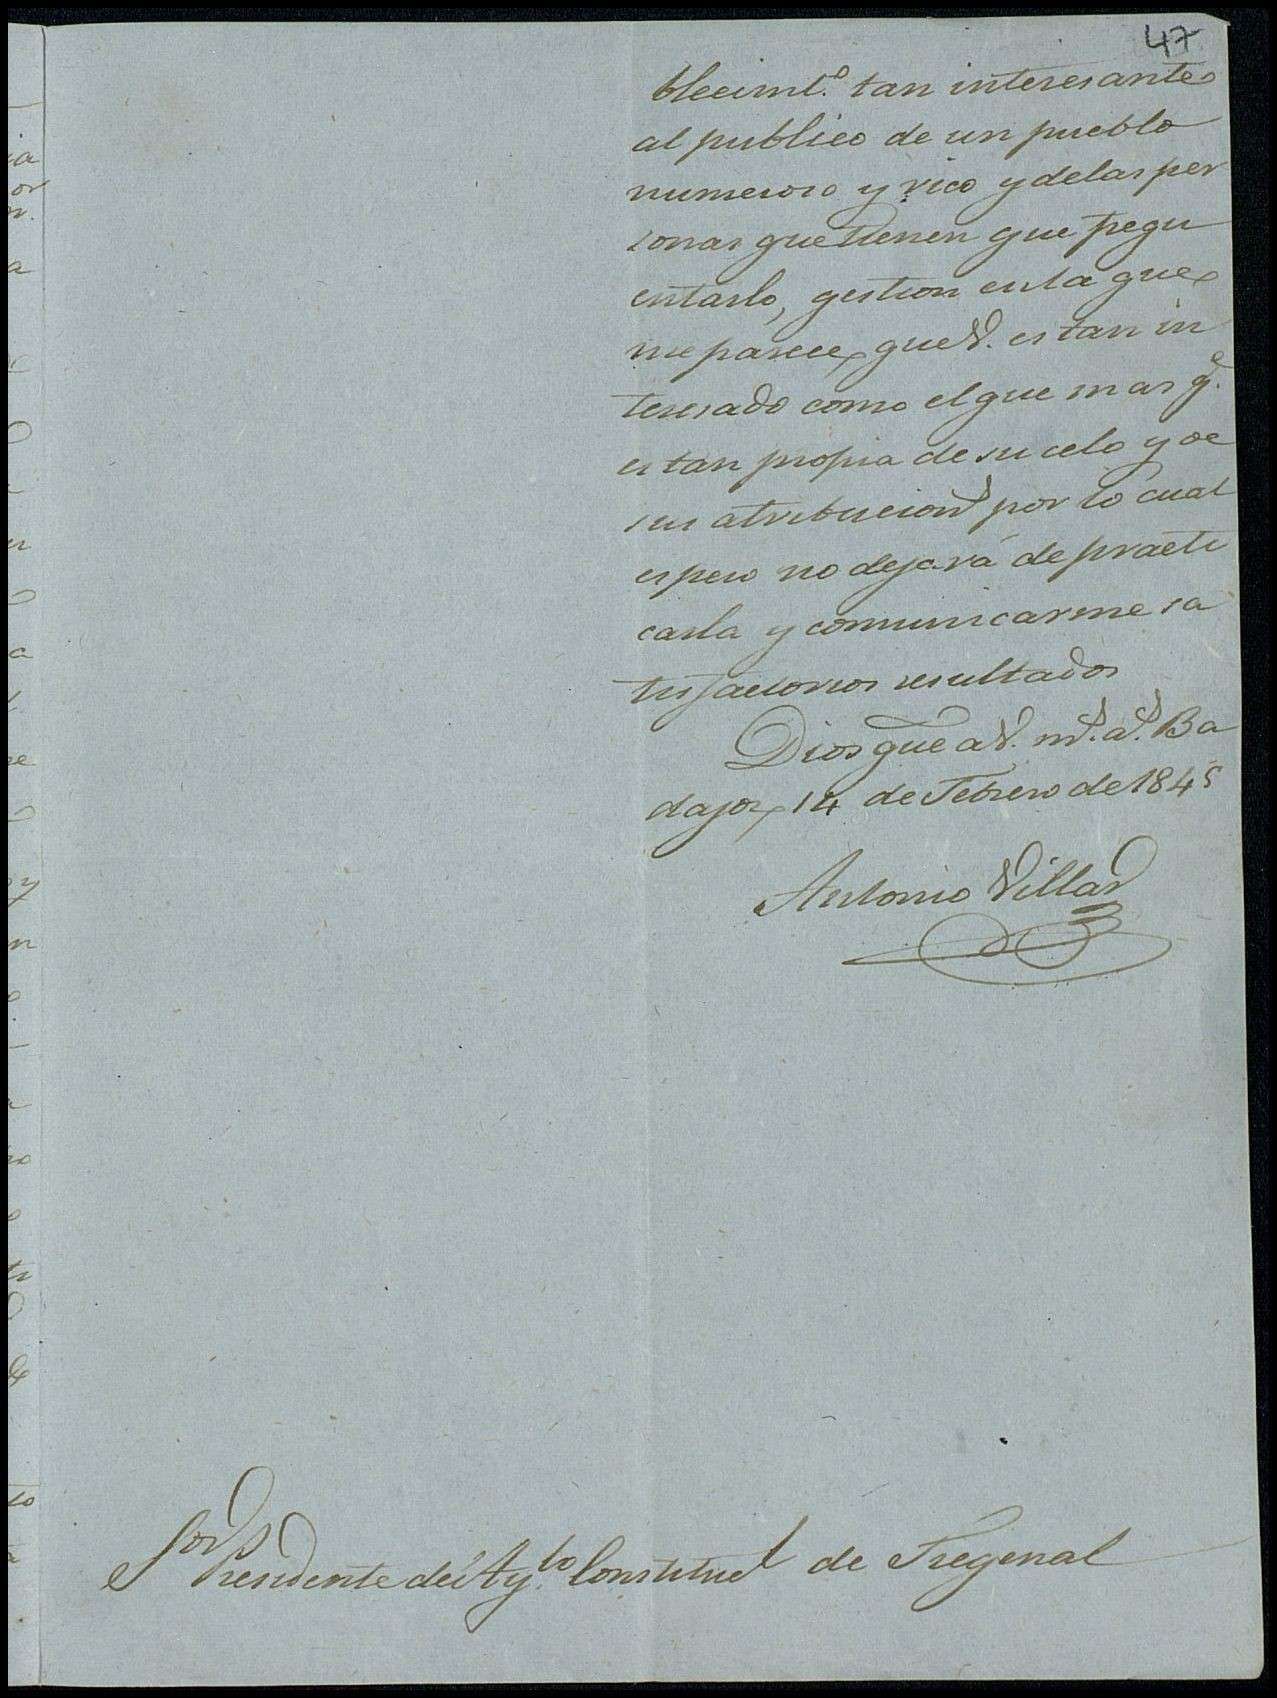 47
blecimt.º tan interesante
al publico de un pueblo
numeroso y rico y delas per
sonas que tienen que frequ
entarlo, gestion enla que
me parece que V. es tan in
teresado como el que mas q.e
es tan propia de su celo y de
sus atribucion.s por lo cual
espero no dejará de practi
carla y comunicarme sa
tisfactorios resultados
Dios gue a V. m.s a.s Ba
dajoz 14 de Febrero de 1845
Antonio Villar
Sor Presidente del Ay.to Constitucl de Fregenal